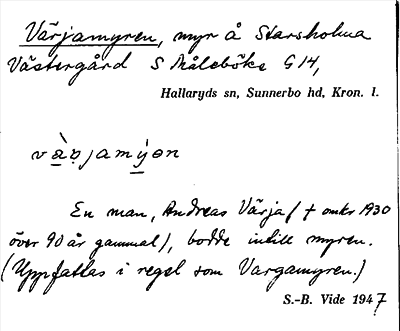 Värjamyren, myr å Starsholma
Västergård S Måleböke G14,
Hallaryds sn, Sunnerbo hd, Kron. l.
vàrjamýen
En man, Andreas Värja († omkr 1930
över 90 år gammal), bodde intill myren.
(Uppfattas i regel som Vargamyren.)
S.-B. Vide 1947